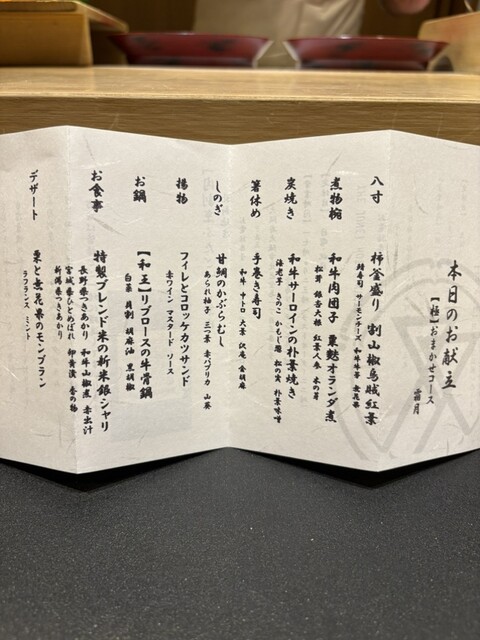 本日のお献立
【極】おまかせコース
霜月
八寸
柿釜盛り 割山椒烏賊紅葉
鯖寿司 サーモンチーズ 和牛時雨 無花果
煮物椀
和牛肉団子 粟麩オランダ煮
松茸 銀杏大根 紅葉人参 木の芽
炭焼き
和牛サーロインの朴葉焼き
海老芋 きのこ かもじ葱 松の実 朴葉味噌
箸休め
手巻き寿司
和牛 中トロ 大葉 沢庵 金胡麻
しのぎ
甘鯛のかぶらむし
あられ柚子 三つ葉 赤パプリカ 山葵
揚物
フィレとコロッケカツサンド
赤ワイン マスタード ソース
お鍋
【和王】リブロースの牛骨鍋
白菜 貝割 胡麻油 黒胡椒
お食事
特製ブレンド米の新米銀シャリ
長野県つきあかり 和牛山椒煮 赤出汁
宮城県ひとめぼれ 卵黄漬 香の物
新潟県つきあかり
デザート
栗と無花果のモンブラン
ラフランス ミント